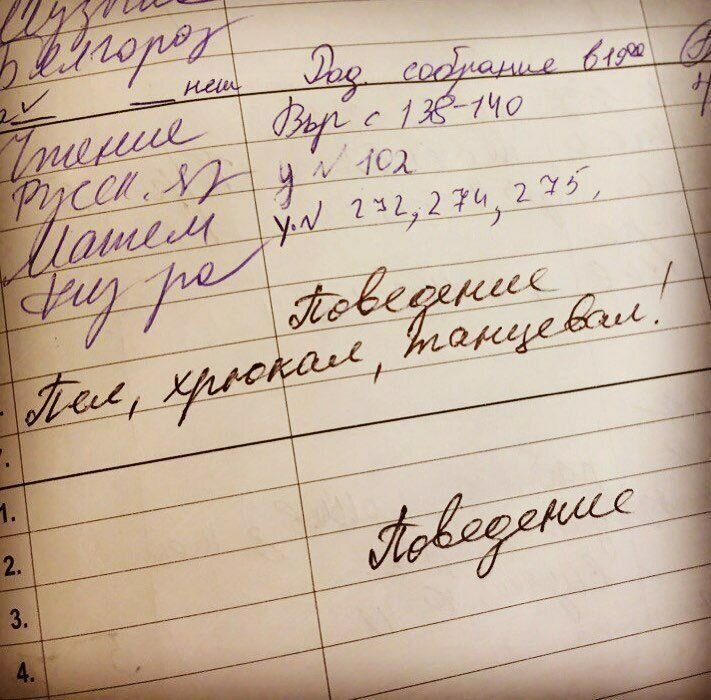 Белгороз
нет Род. собрание в 19⁰⁰
Чтение Выр с 138-140
Русск. яз у N 102
Матем у. N 272, 274, 275,
физ ра
Поведение
Пел, хрюкал, танцевал!
Поведение
1.
2.
3.
4.